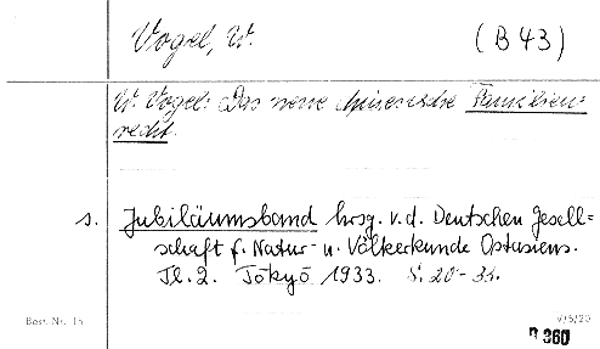 Vogel, W. (B 43)
W. Vogel: Das neue chinesische Familien=
recht.
s. Jubiläumsband hrsg. v. d. Deutschen Gesell=
schaft f. Natur- u. Völkerkunde Ostasiens.
Tl. 2. Tōkyō 1933. S. 20-33.
Best. Nr. 15 V/5/20
360